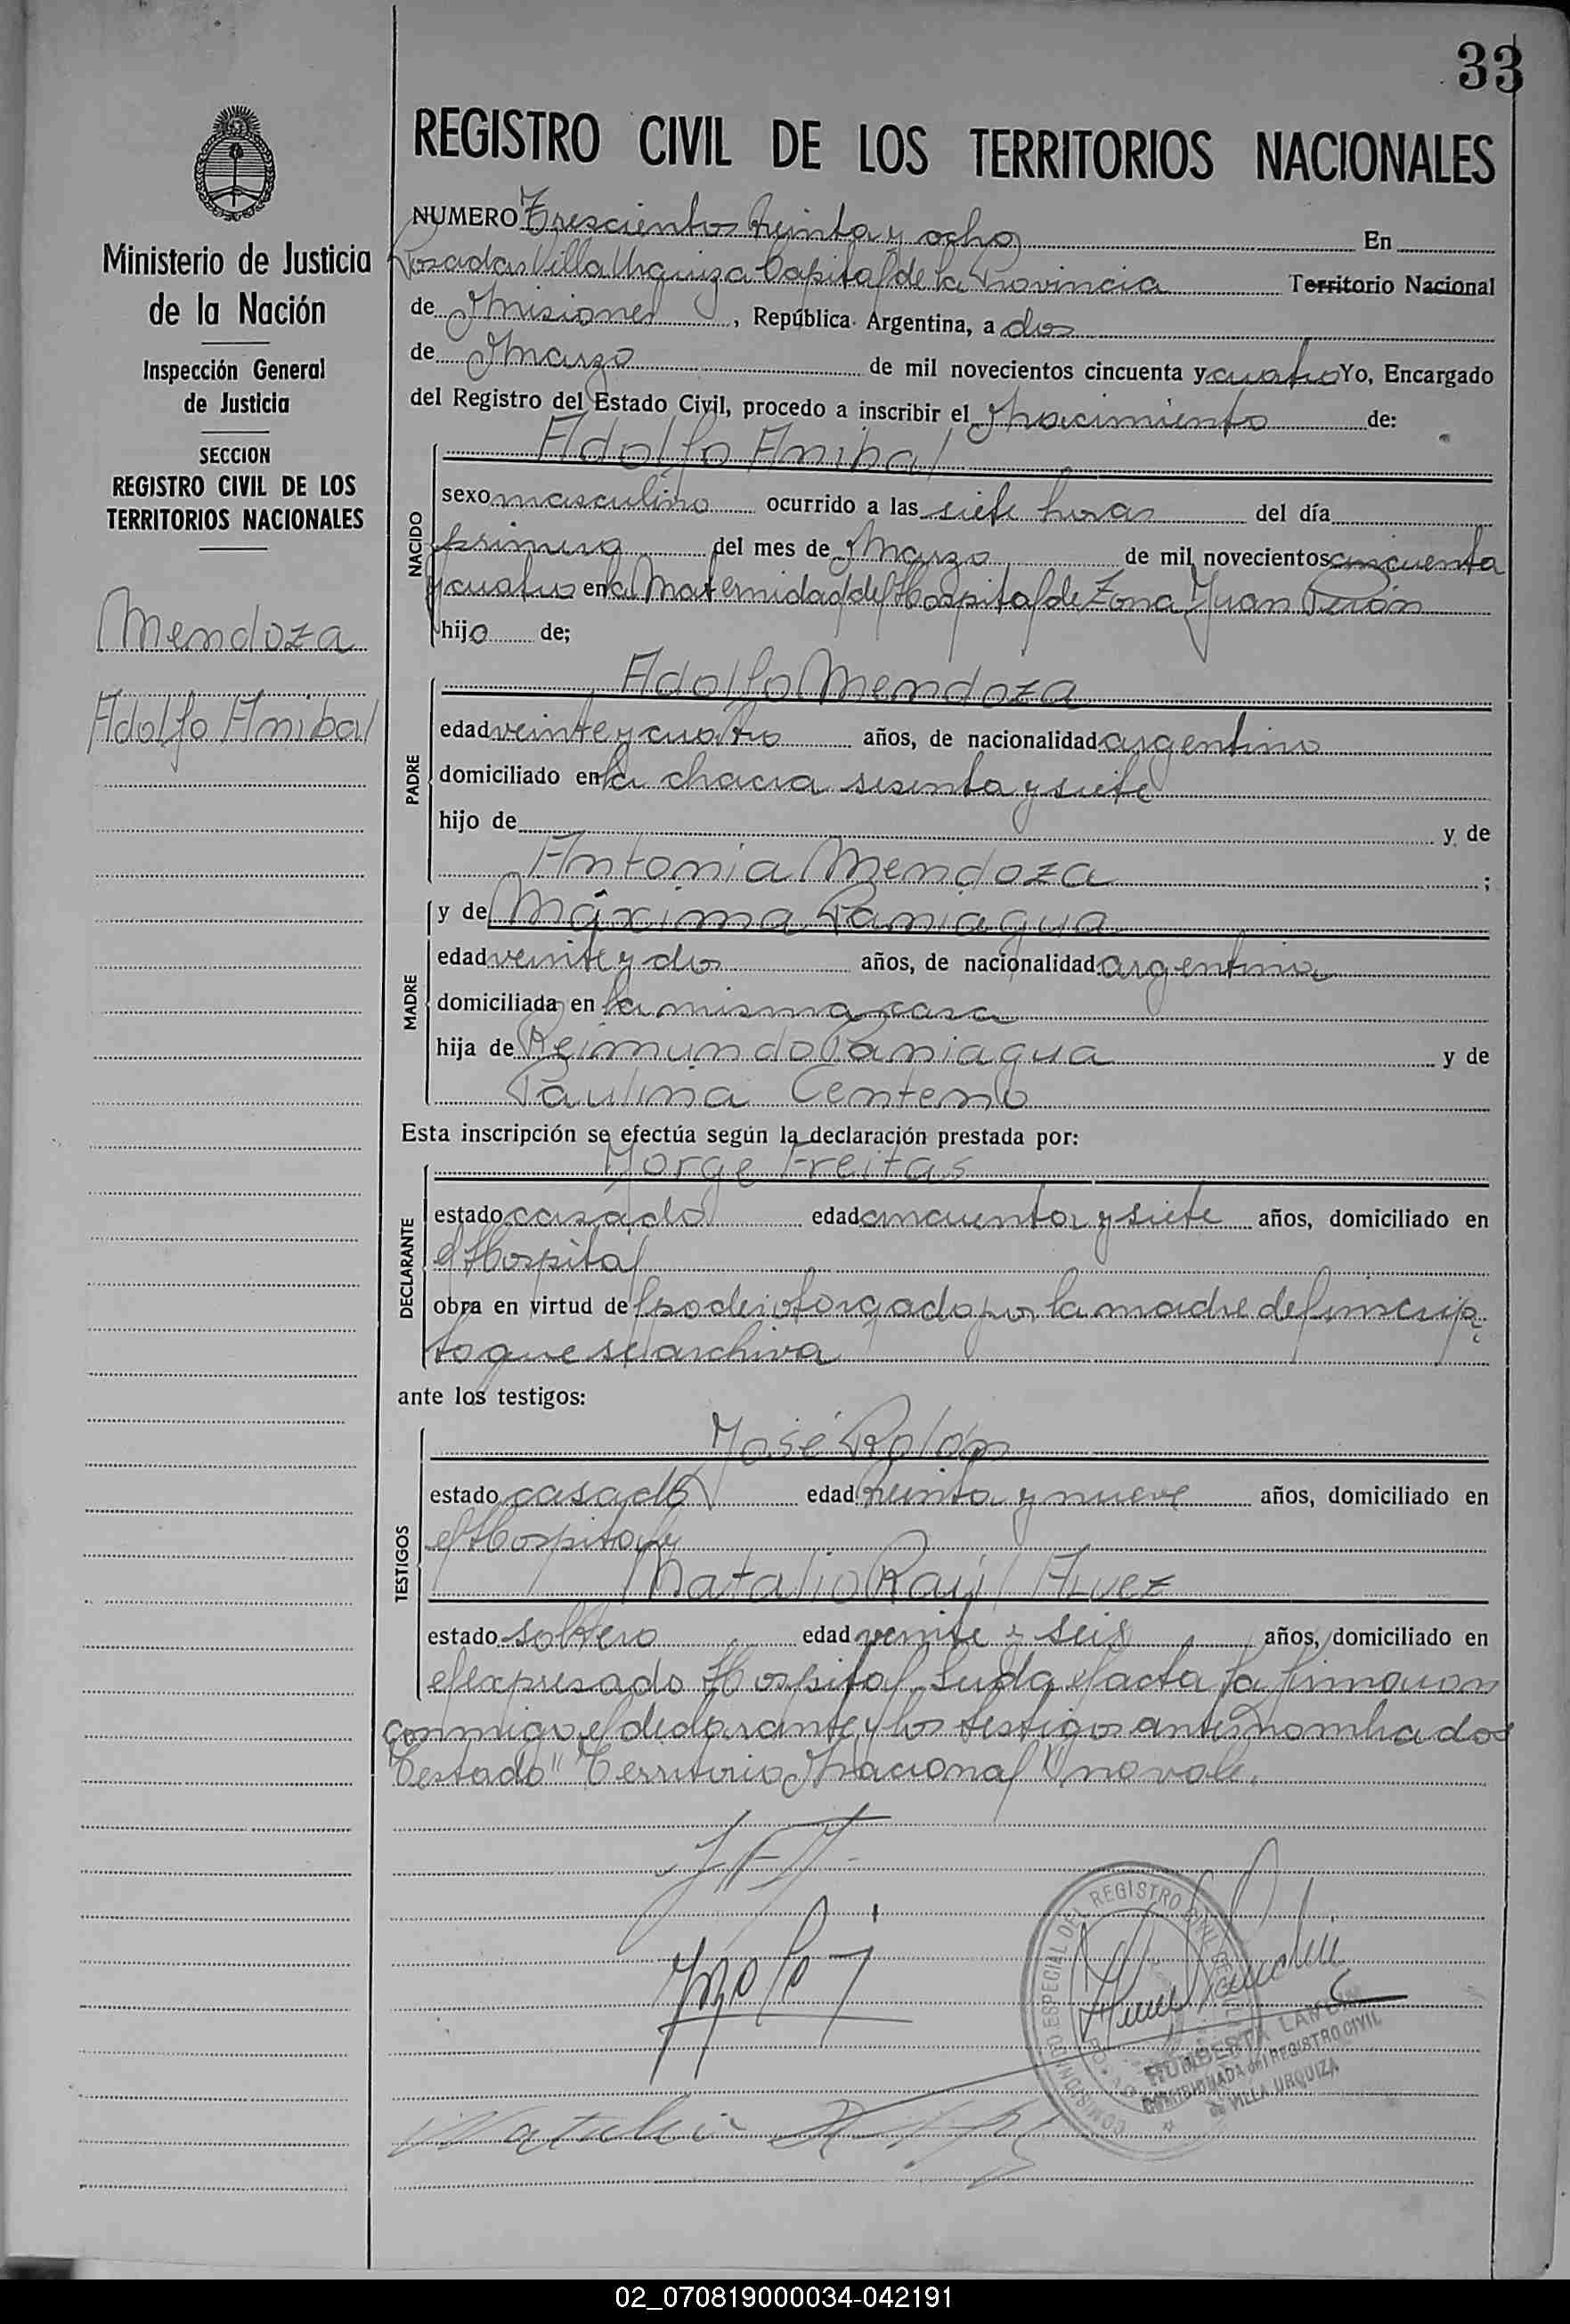 33
REGISTRO CIVIL DE LOS TERRITORIOS NACIONALES
Ministerio de Justicia
de la Nación
Inspección General
de Justicia
SECCION
REGISTRO CIVIL DE LOS
TERRITORIOS NACIONALES
Mendoza
Adolfo Anibal
NUMERO Trescientos treinta y ocho En
Posadas Villa Urquiza Capital de la Provincia Territorio Nacional
de Misiones, República Argentina, a dos
de Marzo de mil novecientos cincuenta y cuatro Yo, Encargado
del Registro del Estado Civil, procedo a inscribir el Nacimiento de:
Adolfo Anibal
NACIDO
sexo masculino ocurrido a las siete horas del día
primero del mes de Marzo de mil novecientos cincuenta
y cuatro en la Maternidad del Hospital de Zona Juan Perón
hijo de;
Adolfo Mendoza
PADRE
edad veinte y cuatro años, de nacionalidad argentino
domiciliado en la chacra sesenta y siete
hijo de y de
Antonia Mendoza ;
y de Máxima Paniagua
MADRE
edad veinte y dos años, de nacionalidad argentina
domiciliada en la misma casa
hija de Reimundo Paniagua y de
Paulina Centeno
Esta inscripción se efectúa según la declaración prestada por:
Jorge Freitas
DECLARANTE
estado casado edad cincuenta y siete años, domiciliado en
el Hospital
obra en virtud de poder otorgado por la madre del inscrip
to que se archiva
ante los testigos:
José Rolón
TESTIGOS
estado casado edad treinta y nueve años, domiciliado en
el Hospital y
Natalio Raúl Alvez
estado soltero edad veinte y seis años, domiciliado en
el expresado Hospital. Leida el acta la firmaron
conmigo el declarante y los testigos antes nombrados
Testado "Territorio Nacional" no vale.
COMISIONADO ESPECIAL DEL REGISTRO CIVIL
HUMBERTA LAN
COMISIONADA del REGISTRO CIVIL
de VILLA URQUIZA
Natalio
02_070819000034-042191